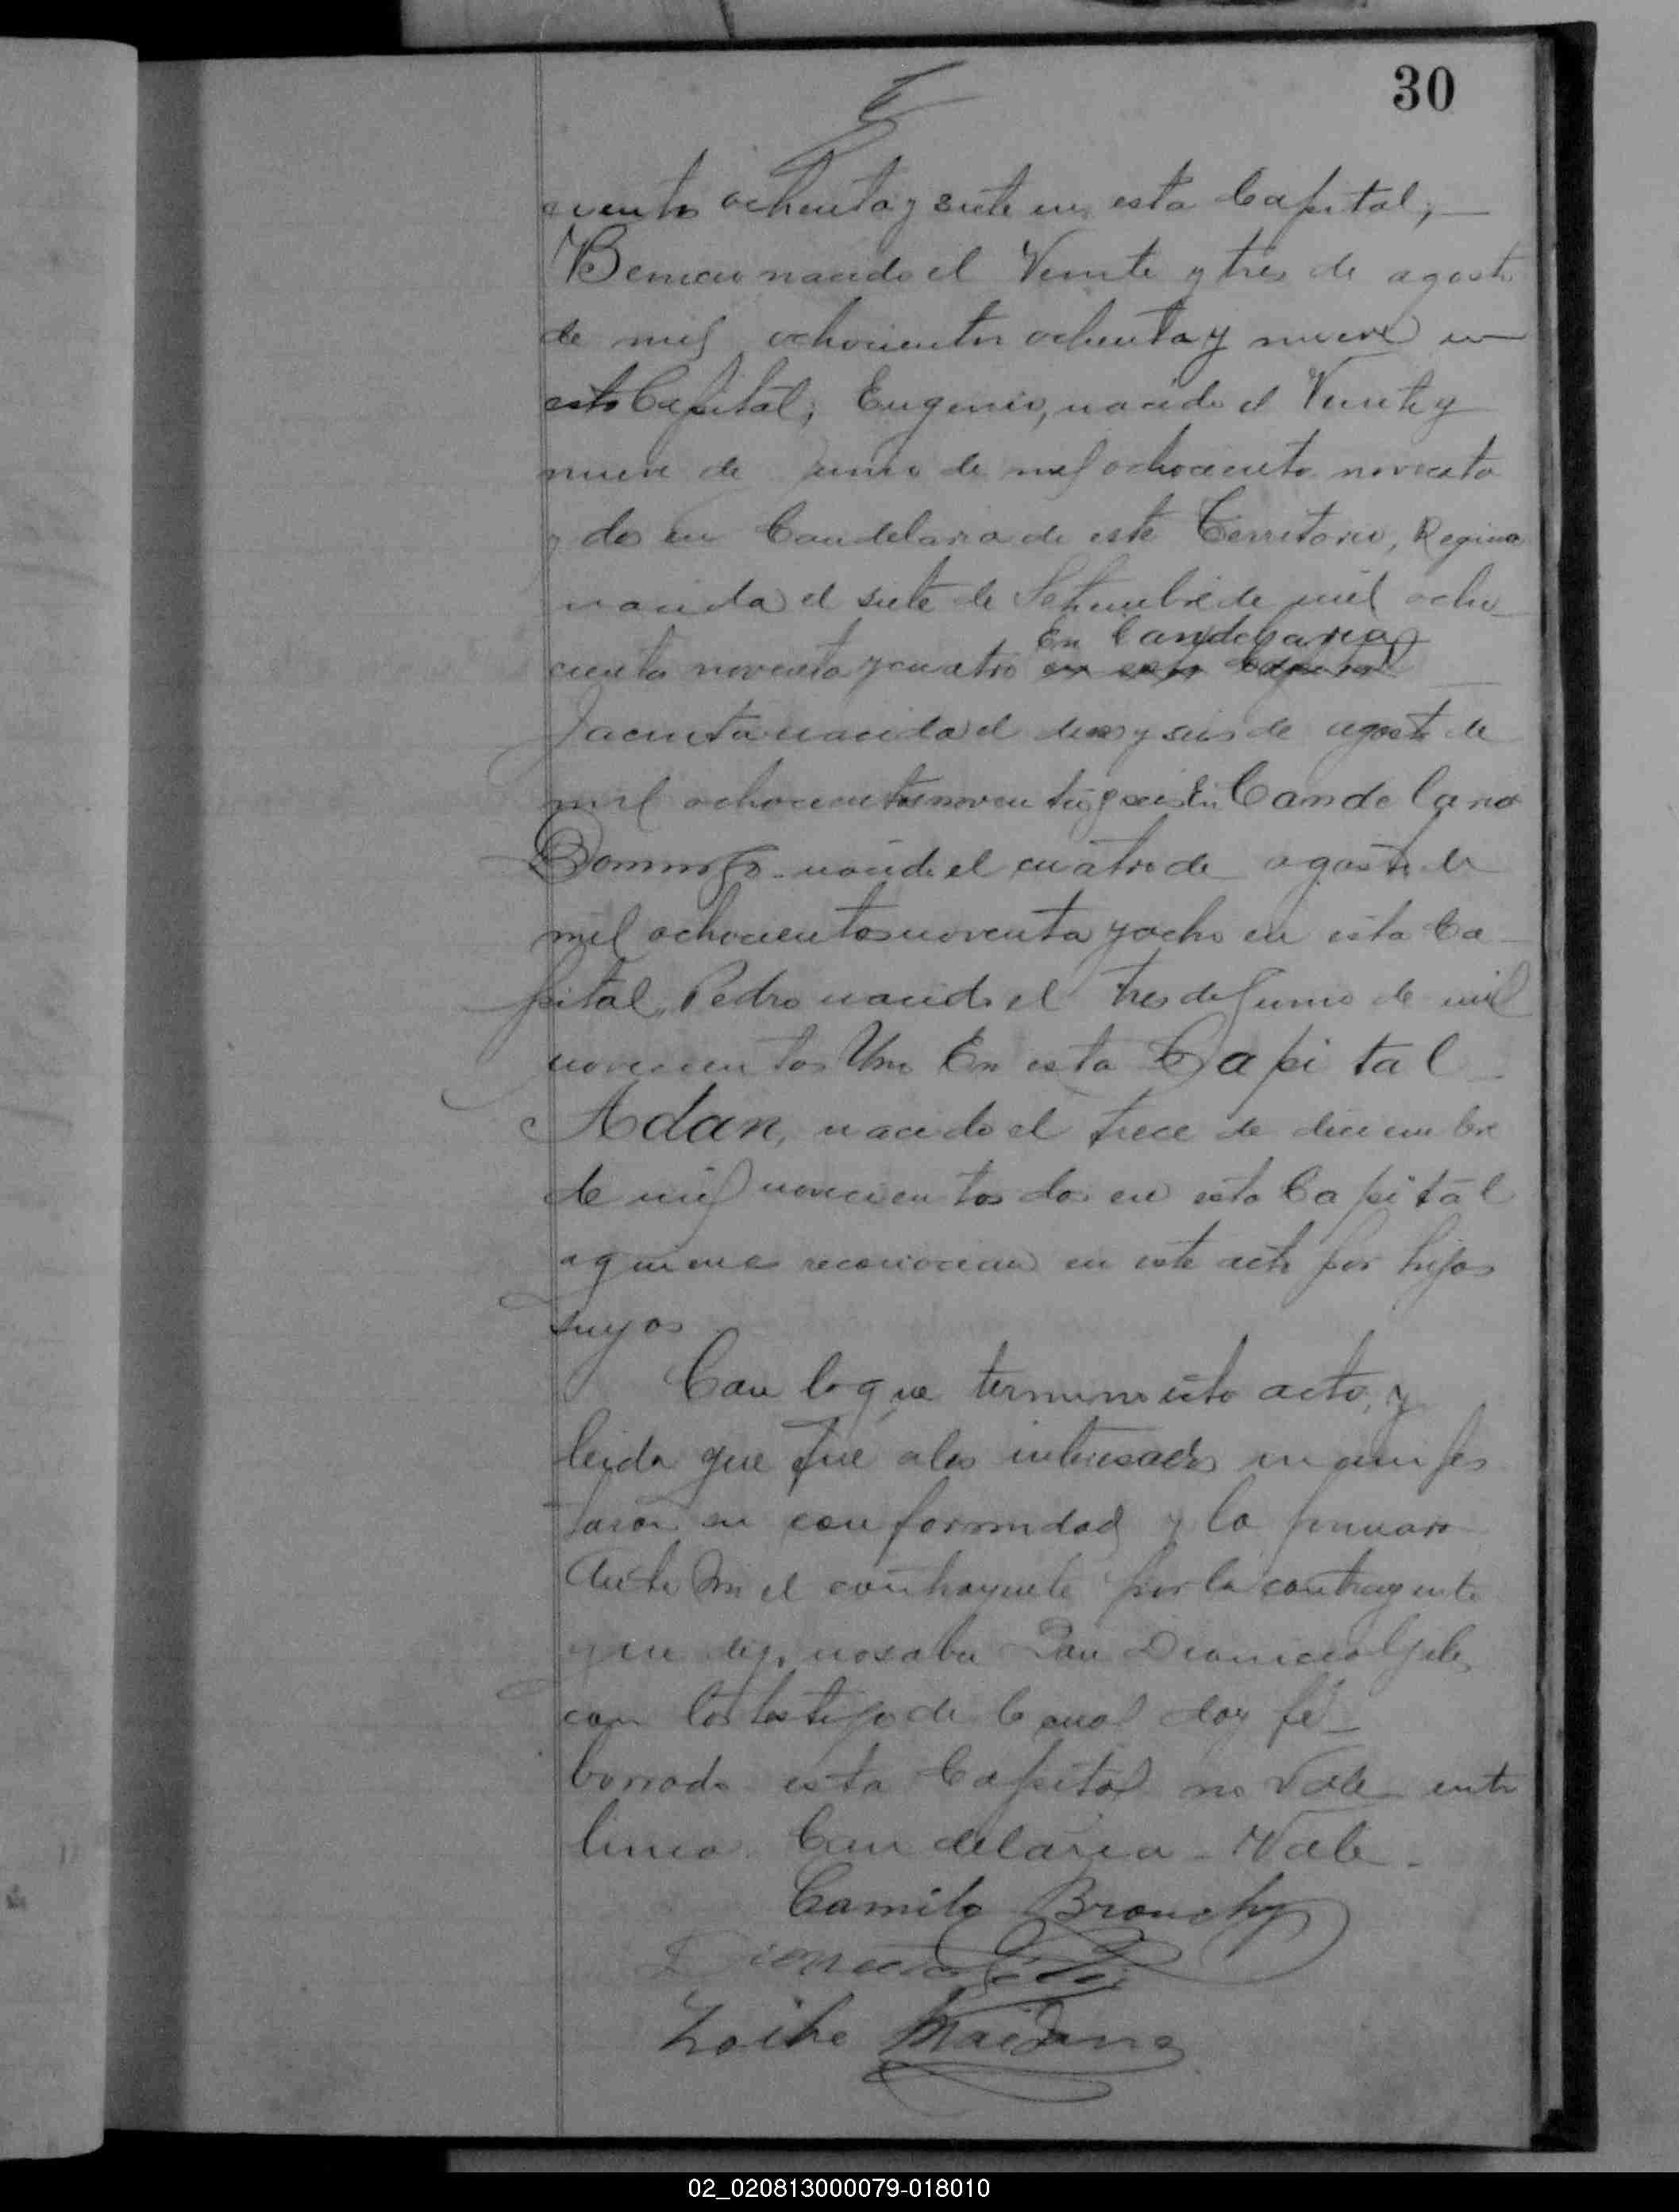 30
cientos ochenta y siete en esta Capital,
nacido el Veinte y tres de agosto
de mil ochocientos ochenta y nueve en
esta Capital; Eugenio, nacido el Veinte y
nueve de Junio de mil ochociento noventa
y dos en Candelaria de este Territorio, Regina
nacida el siete de Setiembre de mil ocho
En Candelaria
ciento noventa y cuatro en esta Capital
Jacinta nacida el diez y seis de agosto de
mil ochocientos noventa y seis En Candelaria
Domingo nacido el cuatro de agosto de
mil ochocientos noventa y ocho en esta Ca
pital, Pedro nacido el tres de Junio de mil
novecientos Uno En esta Capital
Adan, nacido el trece de diciembre
de mil novecientos dos en esta Capital
a quienes reconocian en este acto por hijos
suyos
Con lo que termino este acto, y
leida que fue a los interesados manifes
taron su conformidad y la firmaron
Ante Mi el contrayente por la contrayente
que dijo no saber Don Dionicio
con los testigo de lo cual doy fé
borrado esta Capital no Vale entre
linea Candelaria - Vale -
Camilo
Dionicio
Zoilo Maidana
02_020813000079-018010